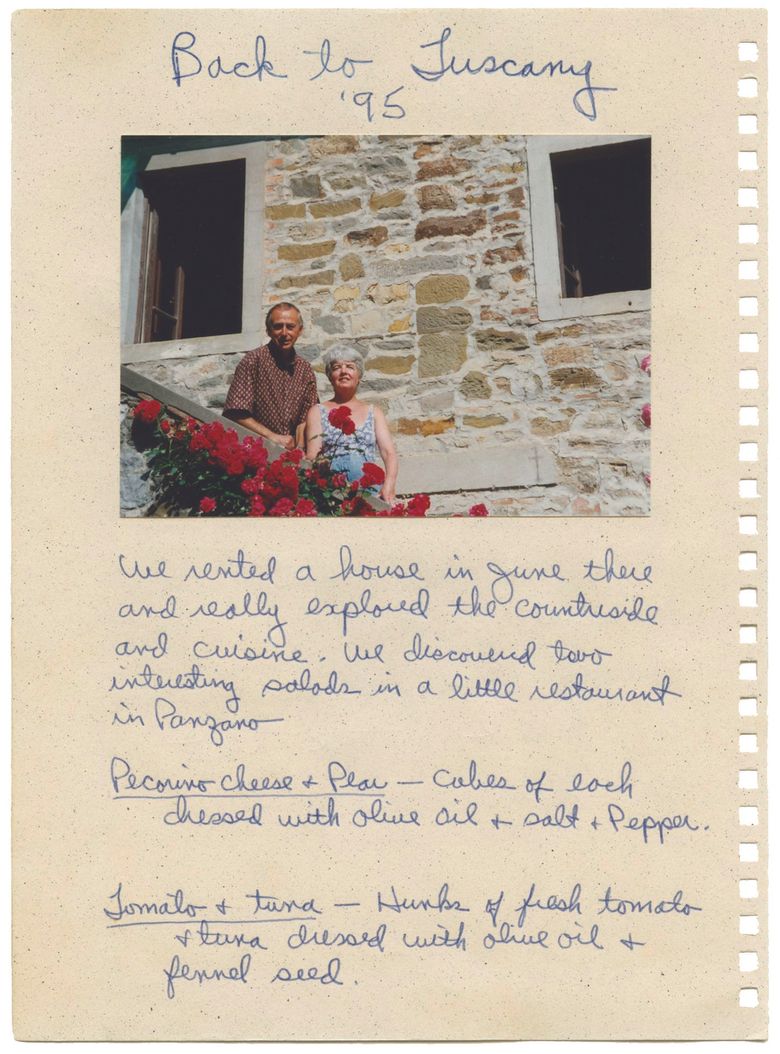 Back to Tuscany
'95
We rented a house in June there
and really explored the countryside
and cuisine. We discovered two
interesting salads in a little restaurant
in Panzano
Pecorino cheese + Pear — cubes of each
dressed with olive oil + salt + Pepper.
Tomato + tuna — Hunks of fresh tomato
+ tuna dressed with olive oil +
fennel seed.